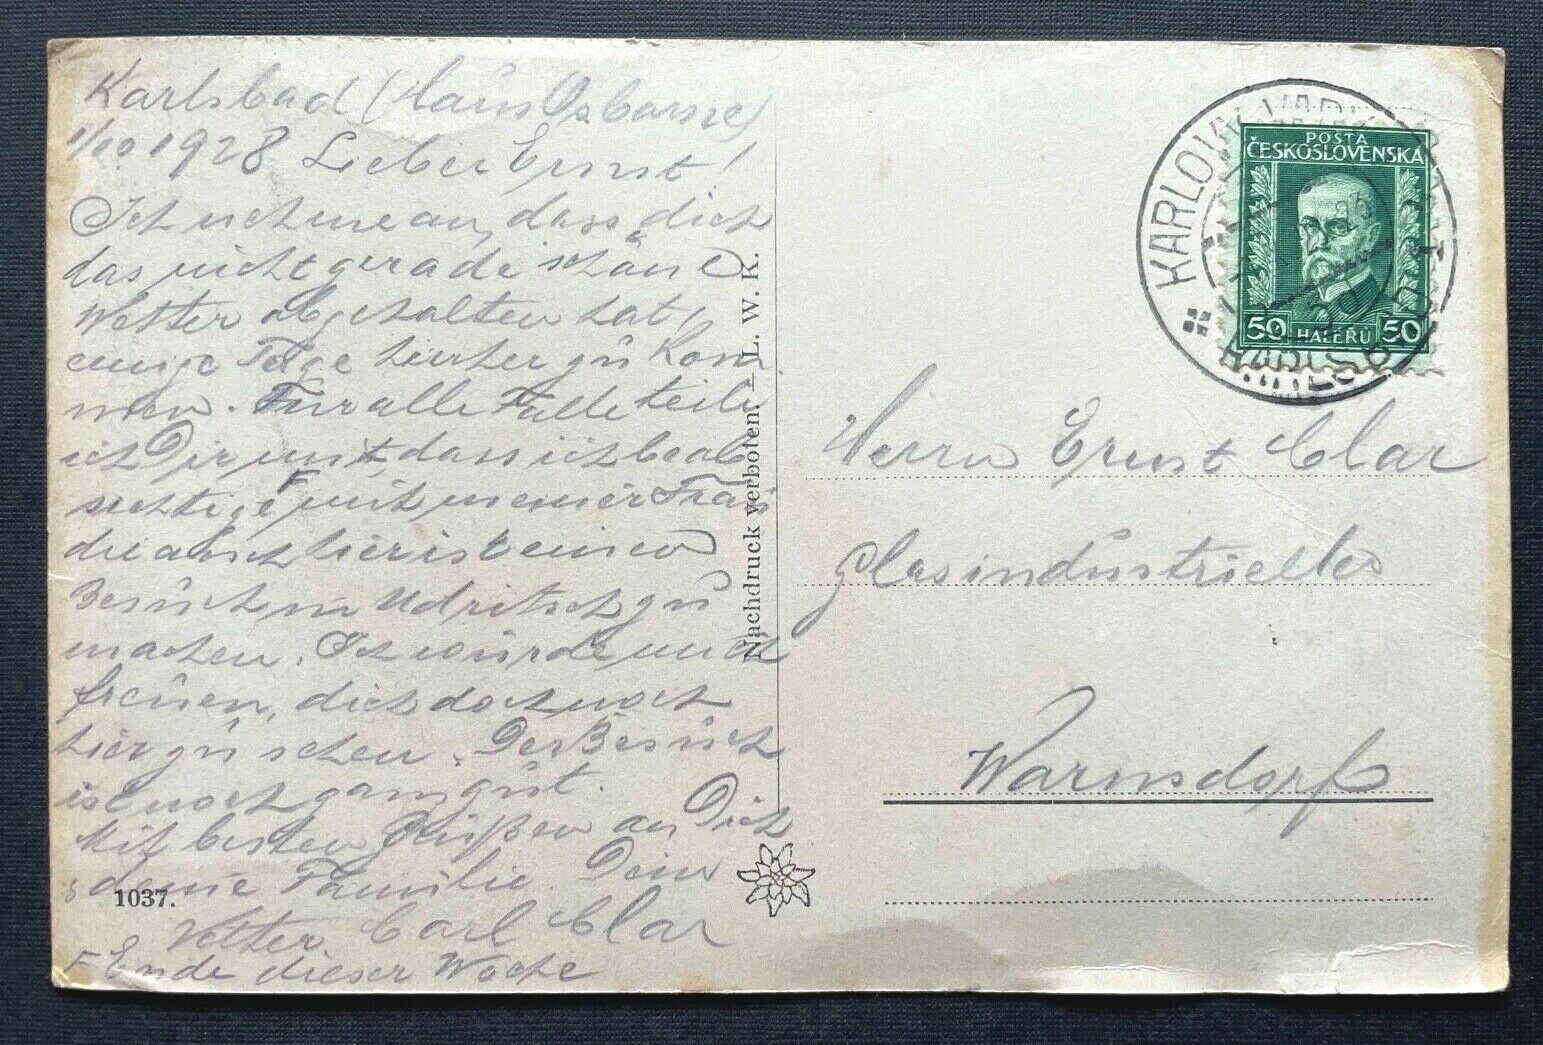 Karlsbad (Haus Osborne)
1/10 1928 Lieber Ernst!
Ich nehme an, dass dich
das nicht gerade schöne
Wetter abgehalten hat,
einige Tage hierher zu kom-
men. Für alle Fälle teile
ich Dir mit, dass ich beab-
sichtige, mit meiner Frau
die auch hier ist einen
Besuch in Udritsch zu
machen. Ich würde mich
freuen, dich doch noch
hier zu sehen. Der Besuch
ist noch ganz gut.
Mit besten Grüßen an Dich
& deine Familie Dein
Vetter Carl Clar
F Ende dieser Woche
1037.
Nachdruck verboten. – L. W. K.
KARLOVY VARY
KARLSBAD
POSTA
ČESKOSLOVENSKA
50 HALERU 50
Herrn Ernst Clar
Glasindustrieller
Warnsdorf